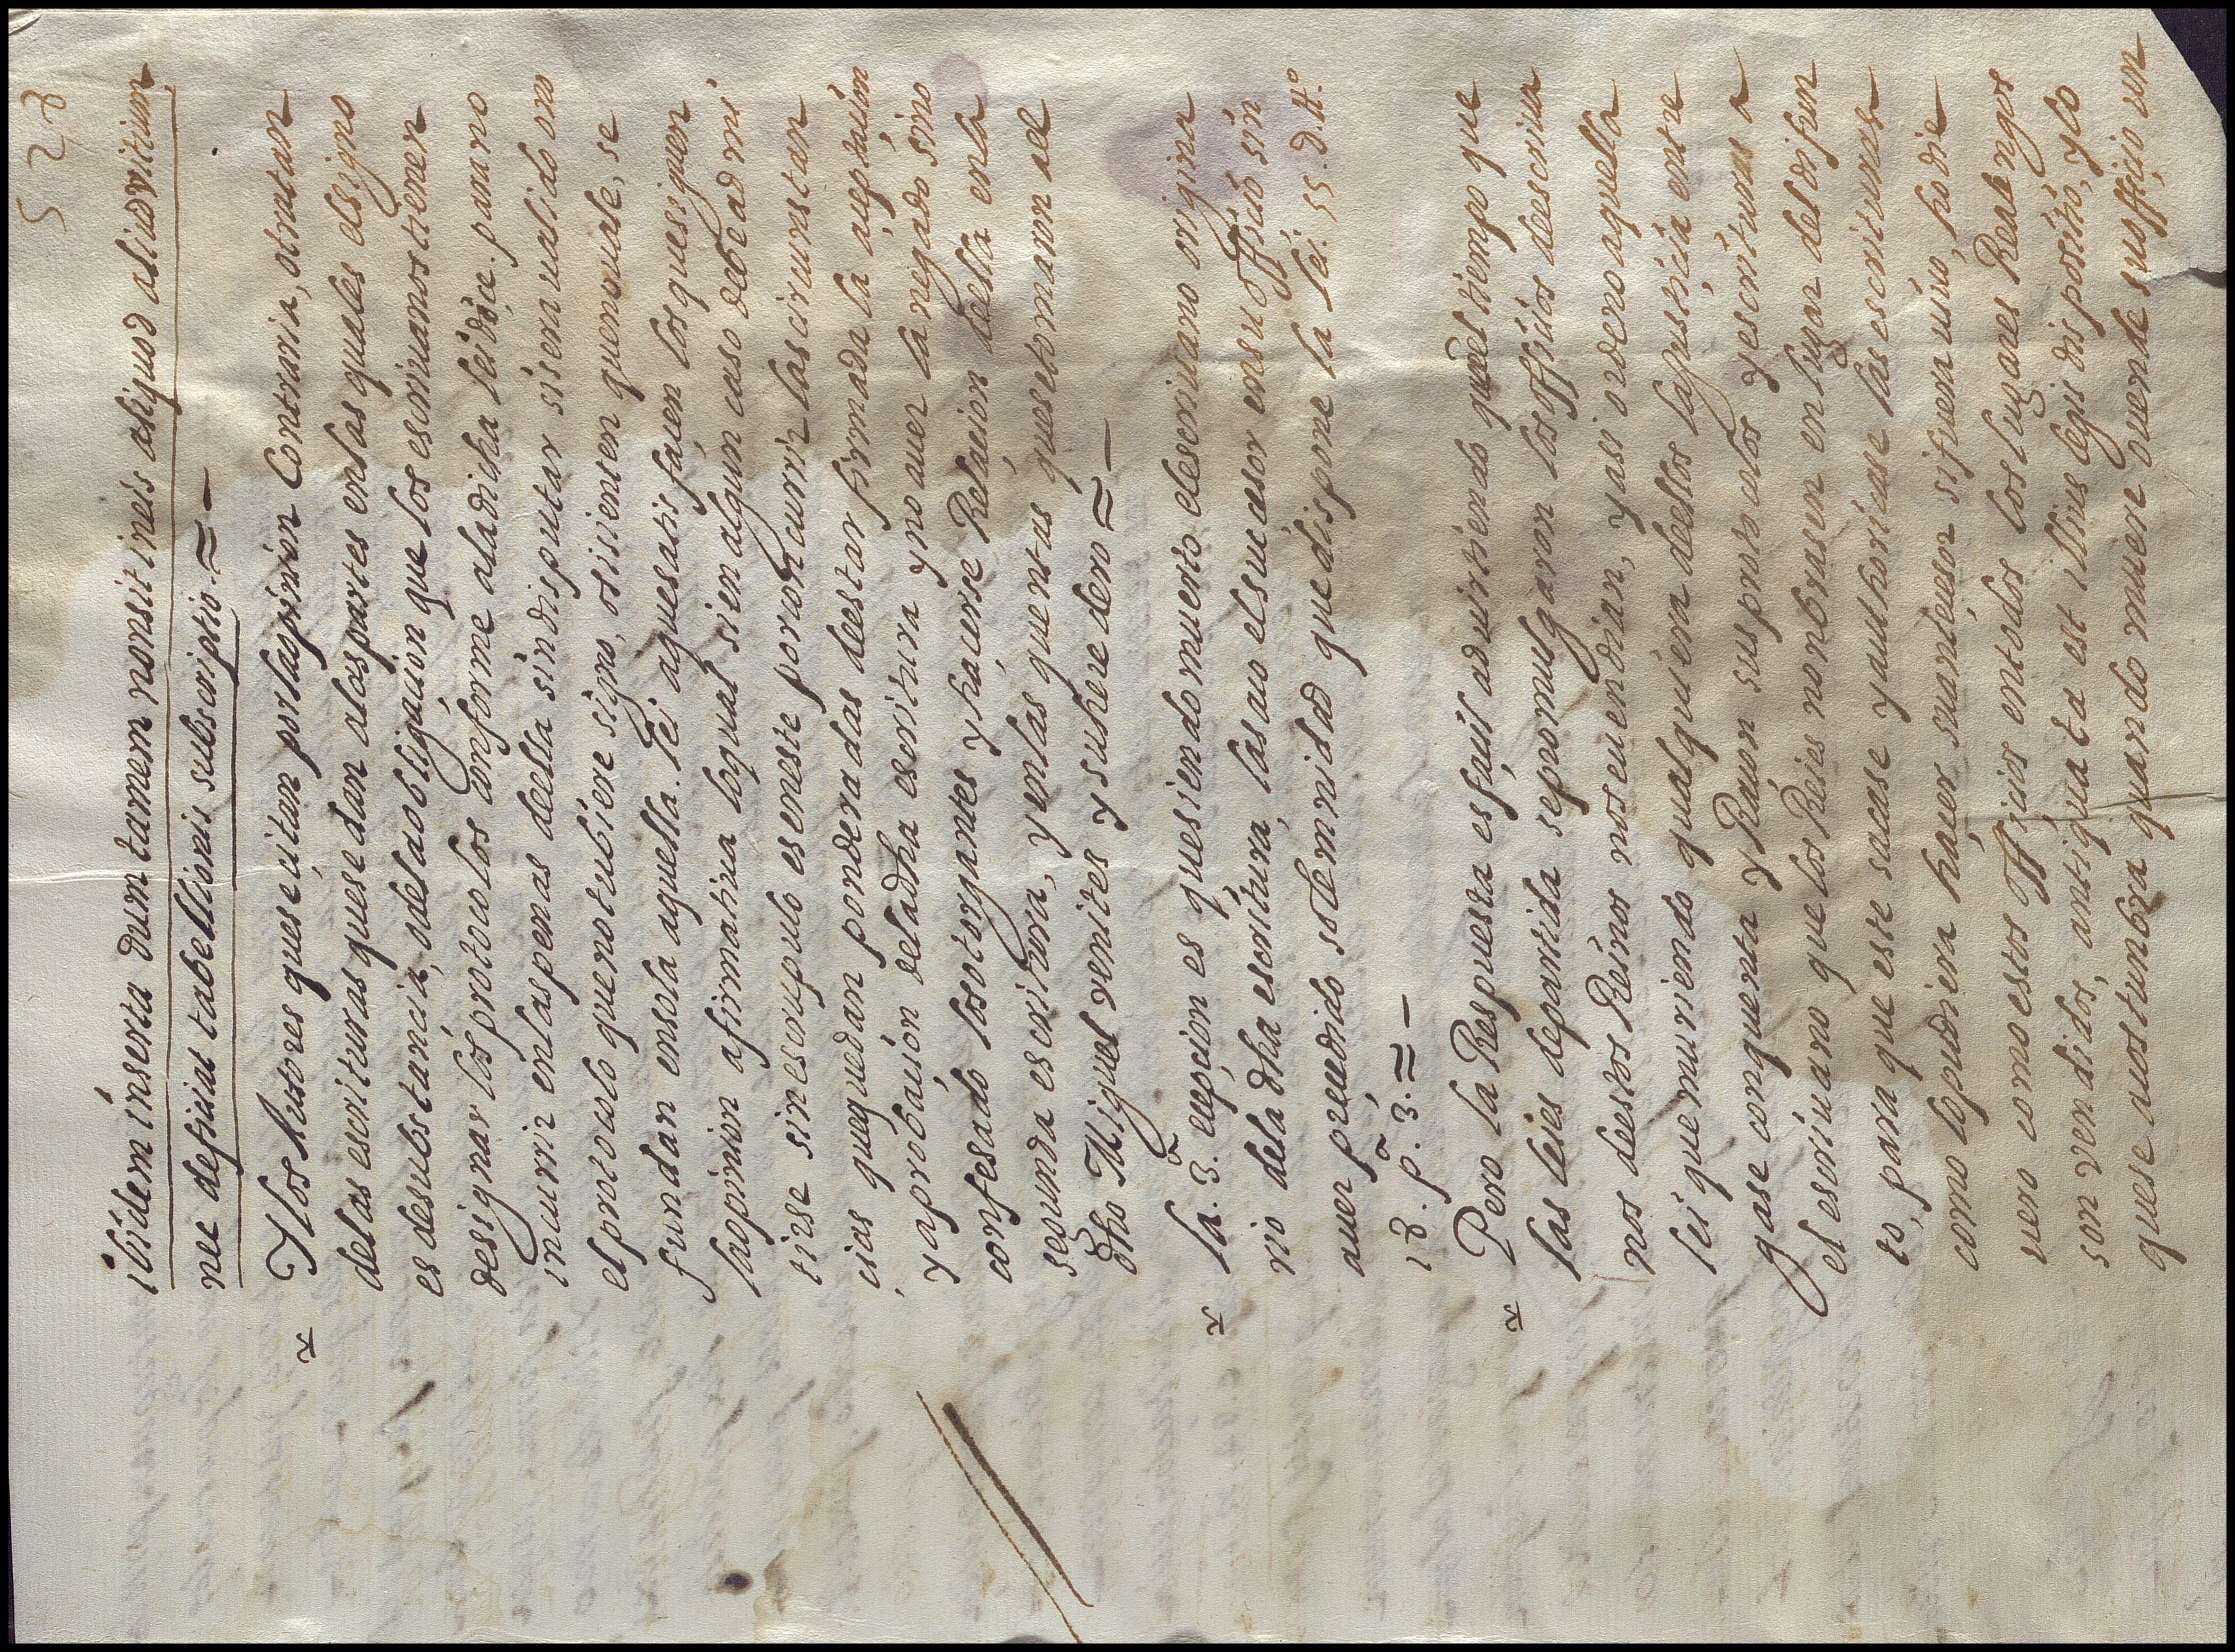 528
ibidem inserta dum tamem nonsit ineis aliquod aliudvitium,
nec deficiat tabellionis subscriptio. ≈ –
Ylos Autores quesecitan porlaopinion Contraria, otratan
delas escrituras quesedan alaspartes enlas quales elsigno
es desubstancia, odelaobligacion que los escriuanostienen
designar los protocolos conforme aladicha leidõçe. parano
incurrir enlaspenas deella sindisputar sisera ualido ono
elprotocolo quenotubiere signo, osisienten quenouale, se
fundan ensola aquella. lei aquesatisfacen los quesiguen
laopinion afirmatiua loqual sien algun caso debe admi
tirse sinescrupulo es eneste porconcurrir lascircunstan
cias quequedan ponderadas deestar firmada la aceptacion
yaprobacion deladha escritura yno auer la negado sino
confesado losotorgantes y hacerse Relacion deella enla
segunda escritura, yenlas quentas quesetomaron ael
dho Miguel venites y suheredero ≈ –
la. 3.ª eccepcion es quesiendomuerto elescriuano origina
rio dela dha escritura, lasaco elsuccesor ensu officio sin
auer precedido solemnidad quedispone la lei. 55. d. tt.º
18. p.ª 3. ≈ –
Pero la Respuesta esfacil aduirtiendo queel tiempo que
las leies departida sepromulgaron los officios deescriua
nos deestos Reinos noseuendian, yasi ordeno aquella
lei quemuriendo qualquiera deellos lajusticia entre
gase conquenta y Racon susprotocolos yescrituras a
el escriuano quelos Reies nonbrasen enlugar deldifun
to, para que este sacase yauthoricase las escrituras
como lopudiera hacer suantecesor sifuera uiuo, hodie
uero como estos officios entodos los lugares Realengos
son vendidos, antiquata est illius legis dispositio, ylo
quese acostunbra quando muere duende suofficio con